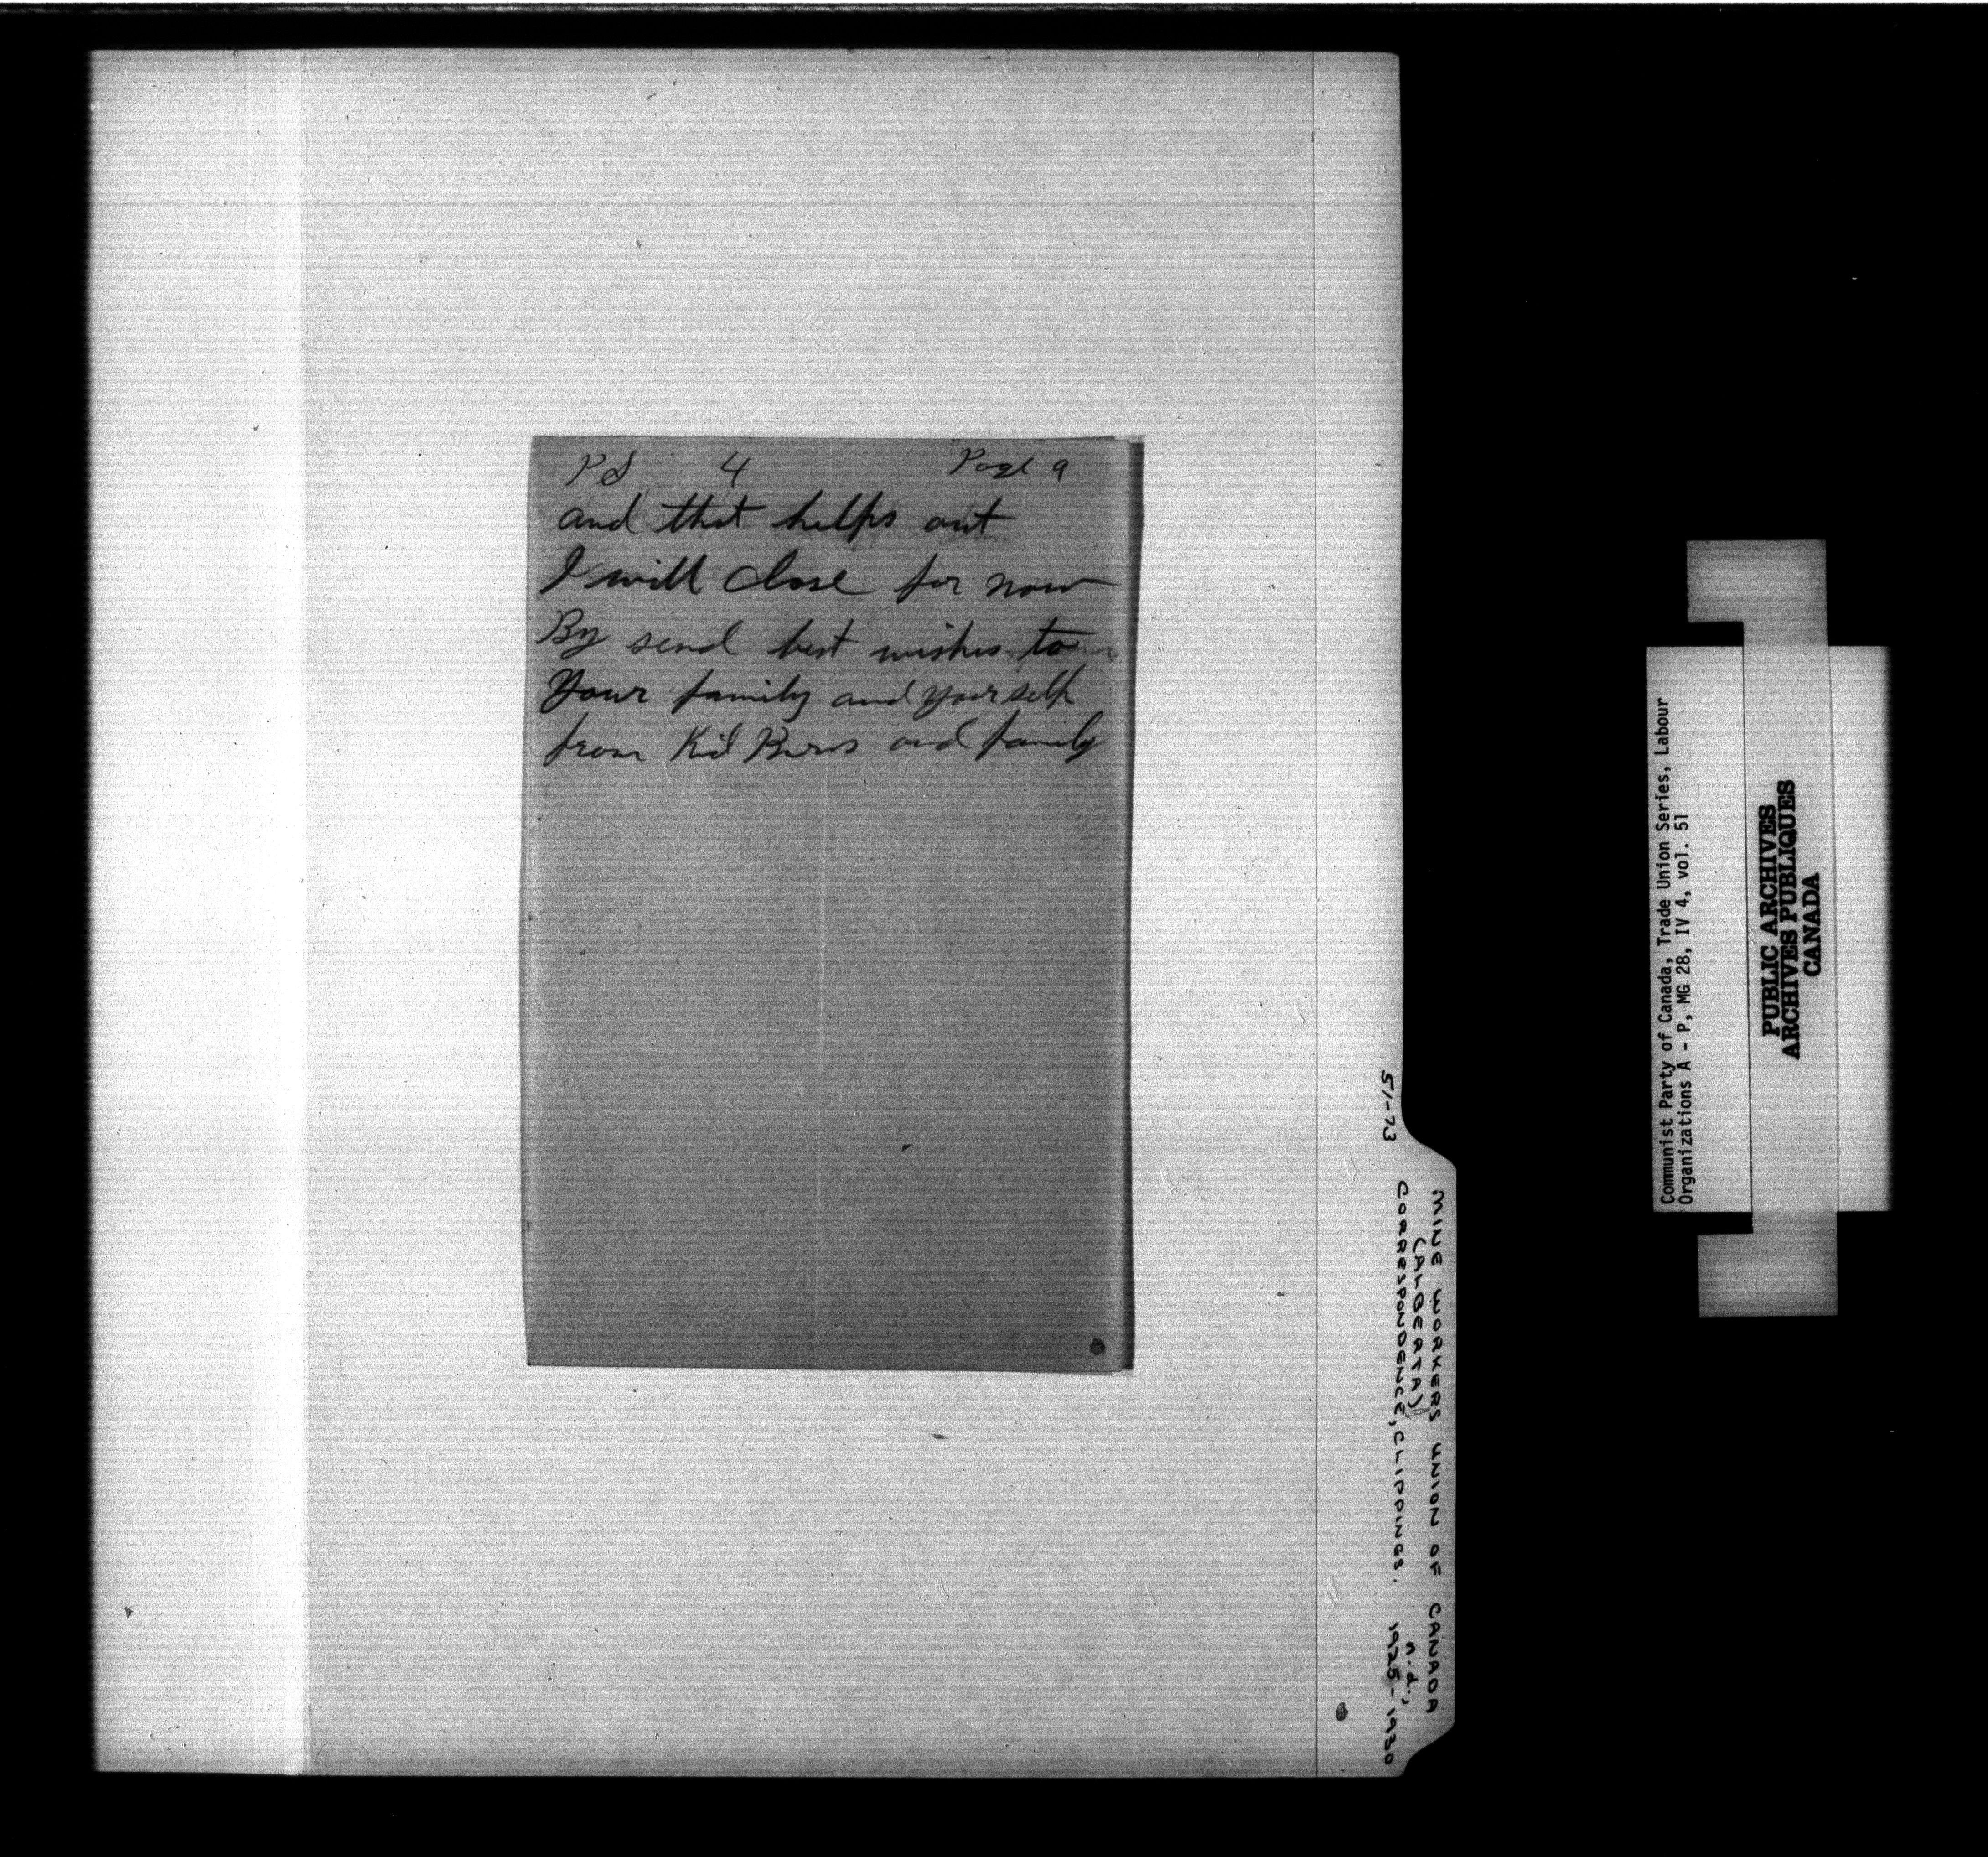 PS 4 Page 9
and that helps out
I will close for now
By send best wishes to
Your family and yourself
from Kid Burns and family
51-73
MINE WORKERS UNION OF CANADA
(ALBERTA)
CORRESPONDENCE, CLIPPINGS. n.d., 1925-1930
Communist Party of Canada, Trade Union Series, Labour
Organizations A - P, MG 28, IV 4, vol. 51
PUBLIC ARCHIVES
ARCHIVES PUBLIQUES
CANADA